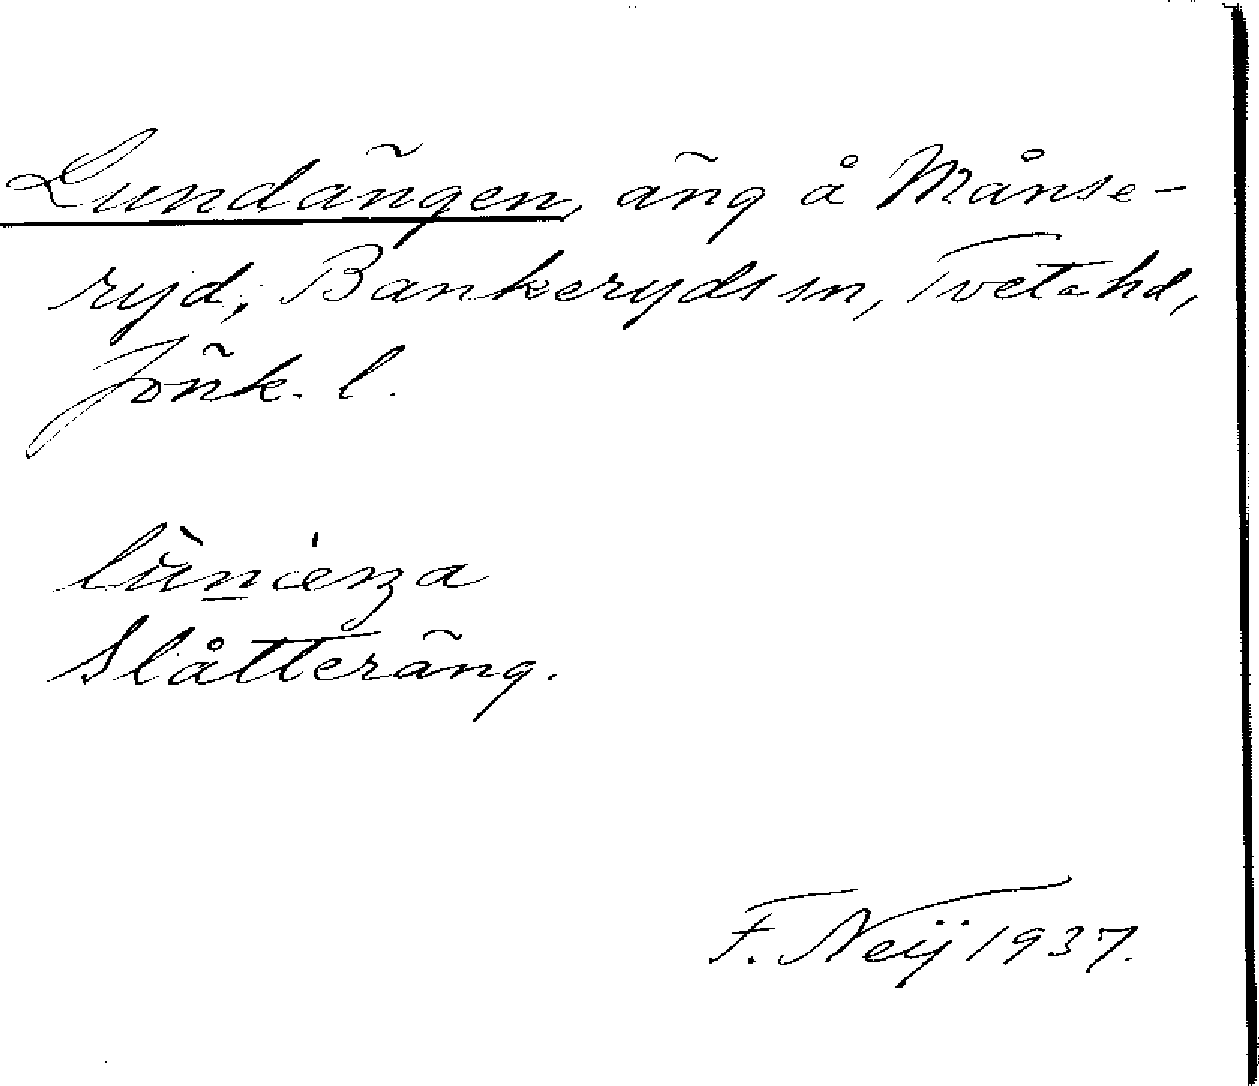 Lundängen, äng å Månse-
ryd, Bankeryds sn, Tveta hd,
Jönk. l.
Slåtteräng.
F. Neij 1937.